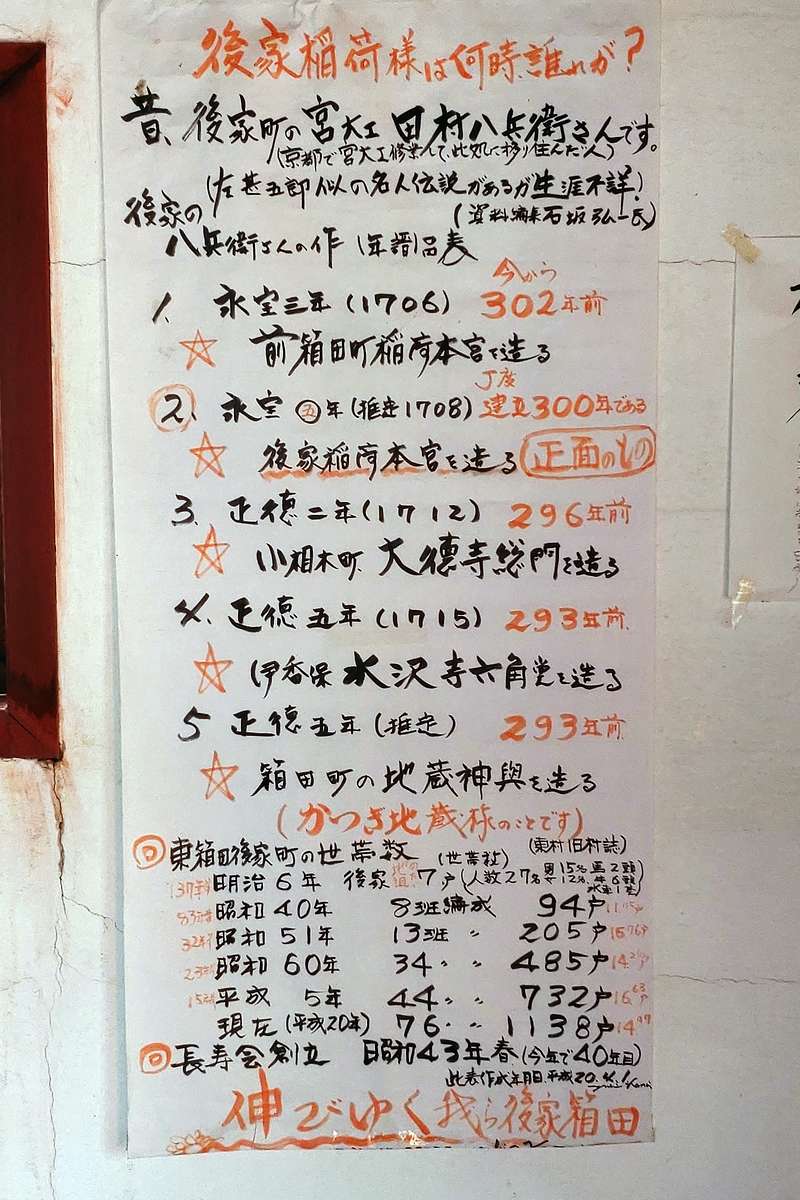 後家稲荷様は何時、誰れが?
昔、後家町の宮大工 田村八兵衛さんです。
(京都で宮大工修業して、此処に移り住んだ人)
(左甚五郎似の名人伝説があるが生涯不詳)
(資料編集石坂弘一氏)
後家の
八兵衛さんの作 年譜品表
今から
1. 永宝三年(1706) 302年前
☆ 前箱田町稲荷本宮を造る
丁度
2. 永宝㊄年(推定1708) 建立300年である
☆ 後家稲荷本宮を造る 正面のもの
3. 正徳二年(1712) 296年前
☆ 小相木町、大徳寺総門を造る
4. 正徳五年(1715) 293年前
☆ 伊香保 水沢寺六角堂を造る
5 正徳五年(推定) 293年前
☆ 箱田町の地蔵神輿を造る
(かつぎ地蔵様のことです)
回 東箱田後家町の世帯数 (世帯数) (東村旧村誌)
137年前 明治6年 後家 7戸(人数27名 男15名 馬2頭
女12名 牛6頭
昭和40年 8班編成 94戸
32年前 昭和51年 13班 〃 205戸 15.76戸
昭和60年 34〃 〃 485戸
平成 5年 44〃 〃 732戸 16.63戸
現在(平成20年) 76〃 〃 1138戸 14.97
回 長寿会創立 昭和43年春(今年で40年目)
此表作成年月日、平成20.4.1
伸びゆく我ら後家箱田